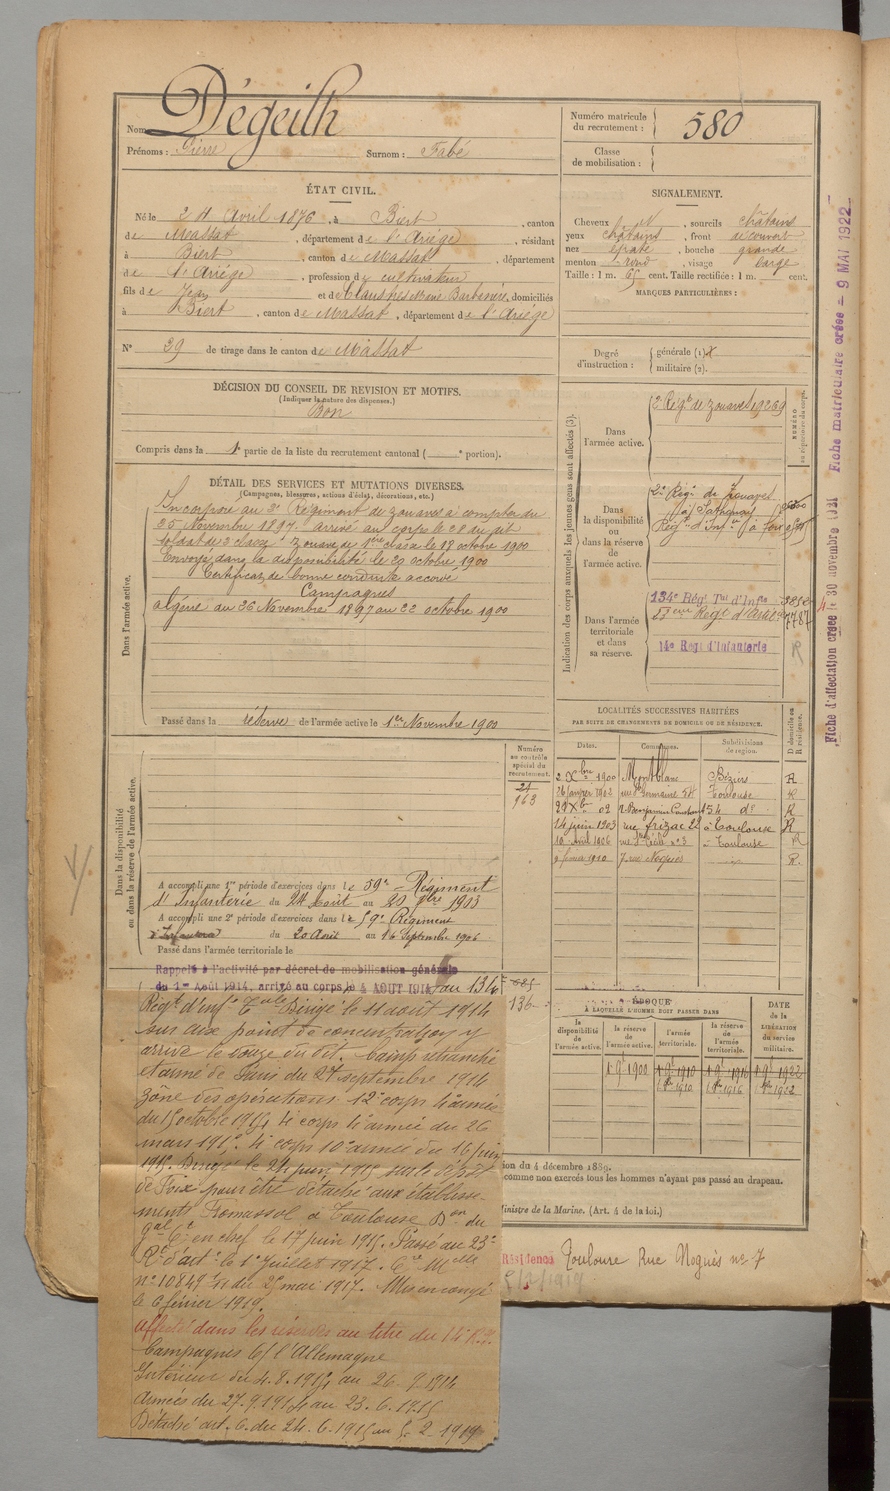 Nom Dégeilh
Prénoms : Pierre Surnom : Fabé
ÉTAT CIVIL.
Né le 24 Avril 1876, à Biert, canton
de Massat, département de l'Ariège, résidant
à Biert, canton de Massat, département
de l'Ariège, profession de cultivateur
fils de Jean et de Marie Barbe, domiciliés
à Biert, canton de Massat, département de l'Ariège
N° 29 de tirage dans le canton de Massat
DÉCISION DU CONSEIL DE REVISION ET MOTIFS.
(Indiquer la nature des dispenses.)
Bon
Compris dans la 1e partie de la liste du recrutement cantonal ( e portion).
DÉTAIL DES SERVICES ET MUTATIONS DIVERSES.
(Campagnes, blessures, actions d'éclat, décorations, etc.)
Dans l'armée active.
Incorporé au 2e Régiment de zouaves à compter du
25 Novembre 1897. arrivé au corps le 28 du dit
soldat de 2e classe. Zouave de 1ère classe le 18 octobre 1900
Envoyé dans la disponibilité le 29 octobre 1900
Certificat de bonne conduite accordé
Campagnes
Algérie du 26 Novembre 1897 au 22 octobre 1900
Passé dans la réserve de l'armée active le 1er Novembre 1900
Dans la disponibilité
ou dans la réserve de l'armée active.
Numéro
au contrôle
spécial du
recrutement.
163
A accompli une 1re période d'exercices dans le 59e Régiment
d'Infanterie du 24 Août au 20 7bre 1903
A accompli une 2e période d'exercices dans le 59e Régiment
d'Infanterie du 20 Août au 16 Septembre 1906
Passé dans l'armée territoriale le
Rappelé à l'activité par décret de mobilisation générale
du 1er Août 1914, arrivé au corps le 4 AOUT 1914 au 134e
136
Régt d'Infie Tale Dirigé le 11 août 1914
sur aux point de concentration y
arrive le douze du dit. Camp retranché
et armé de Paris du 27 septembre 1914
zône des opérations 12e corps 4e armée
du 15 octobre 1914 4e corps 4e armée du 26
mars 1915. 4e corps 10e armée du 16 juin
1915. Dirigé le 24 juin 1915 sur le dépôt
de Foix pour être détaché aux établisse-
ments Fomassol à Toulouse Don du
Gal Ct en chef le 17 juin 1915. Passé au 23e
Rt d'artie le 1er Juillet 1917. Cre Melle
n° 10849 du 25 mai 1917. Mis en congé
le 6 février 1919.
Affecté dans les réserves au titre du 14e R.I.
Campagnes C/ l'Allemagne
Intérieur du 4.8.1914 au 26.9.1914
Armées du 27.9.1914 au 23.6.1915
Détaché art. 6. du 24.6.1915 au 5.2.1919
Numéro matricule
du recrutement : 580
Classe
de mobilisation :
SIGNALEMENT.
Cheveux, sourcils châtains
yeux châtains, front découvert
nez épaté, bouche grande
menton rond, visage large
Taille : 1 m. 65 cent. Taille rectifiée : 1 m. cent.
MARQUES PARTICULIÈRES :
Degré
d'instruction :
générale (1)
militaire (2).
Indication des corps auxquels les jeunes gens sont affectés (3).
NUMÉRO
au répertoire du corps.
Dans
l'armée active.
2e Régt de Zouaves 19269
Dans
la disponibilité
ou dans la réserve
de l'armée active.
2e Régt de Zouaves
(à Sathonay)
Régt d'Infie à Foix
Dans l'armée
territoriale
et dans
sa réserve.
134e Régt Tal d'Infie
Régt d'Artie 7787
14e Régt d'Infanterie R
LOCALITÉS SUCCESSIVES HABITÉES
PAR SUITE DE CHANGEMENTS DE DOMICILE OU DE RÉSIDENCE.
Dates. Communes. Subdivisions de région. D domicile ou R résidence.
2 Xbre 1900 Montblanc Béziers R
26 janvier 1902 rue St Germaine 54 Toulouse R
29 Xbre 02 R. Benjamin Constant 54 do R
14 juin 1903 rue Frizac 22 à Toulouse R
10 avril 1906 rue Ste Cécile n° 3 à Toulouse R
février 1910 7 rue Noguès R.
ÉPOQUE
À LAQUELLE L'HOMME DOIT PASSER DANS
DATE
de la
LIBÉRATION
du service
militaire.
la disponibilité de l'armée active.
la réserve de l'armée active.
l'armée territoriale.
la réserve de l'armée territoriale.
1 9e 1900 1 9e 1910 1 9e 1916 1 9e 1922
1 8re 1910 1 8re 1916 1 8re 1922
ion du 4 décembre 1889.
comme non exercés tous les hommes n'ayant pas passé au drapeau.
inistre de la Marine. (Art. 4 de la loi.)
Résidence Toulouse Rue Noguès n° 7
5/2/1919
Fiche d'affectation créée le 30 novembre 1921 Fiche matriculaire créée - 9 MAI 1922